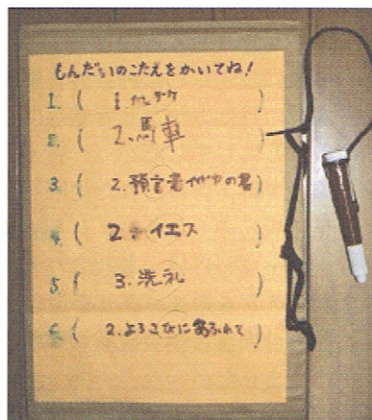 もんだいのこたえをかいてね!
1. ( 1. )
2. ( 2. 馬車 )
3. ( 2. 預言者イザヤの書 )
4. ( 2 イエス )
5. ( 3. 洗礼 )
6. ( 2. よろこびにあふれて )